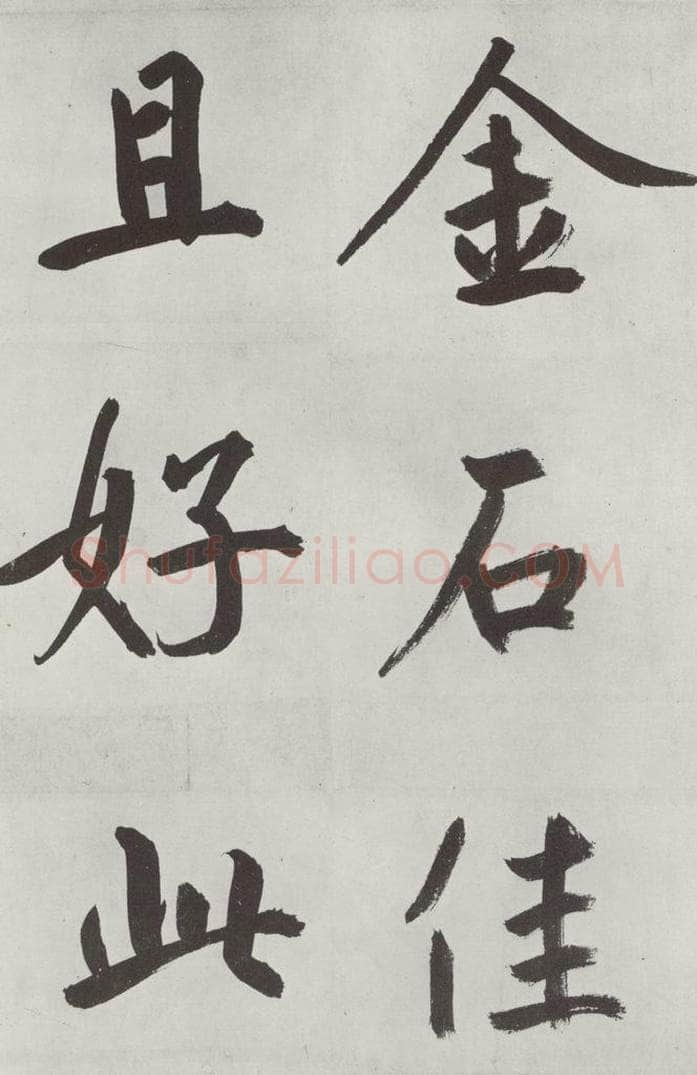 金石佳
且好此
Shufaziliao.COM